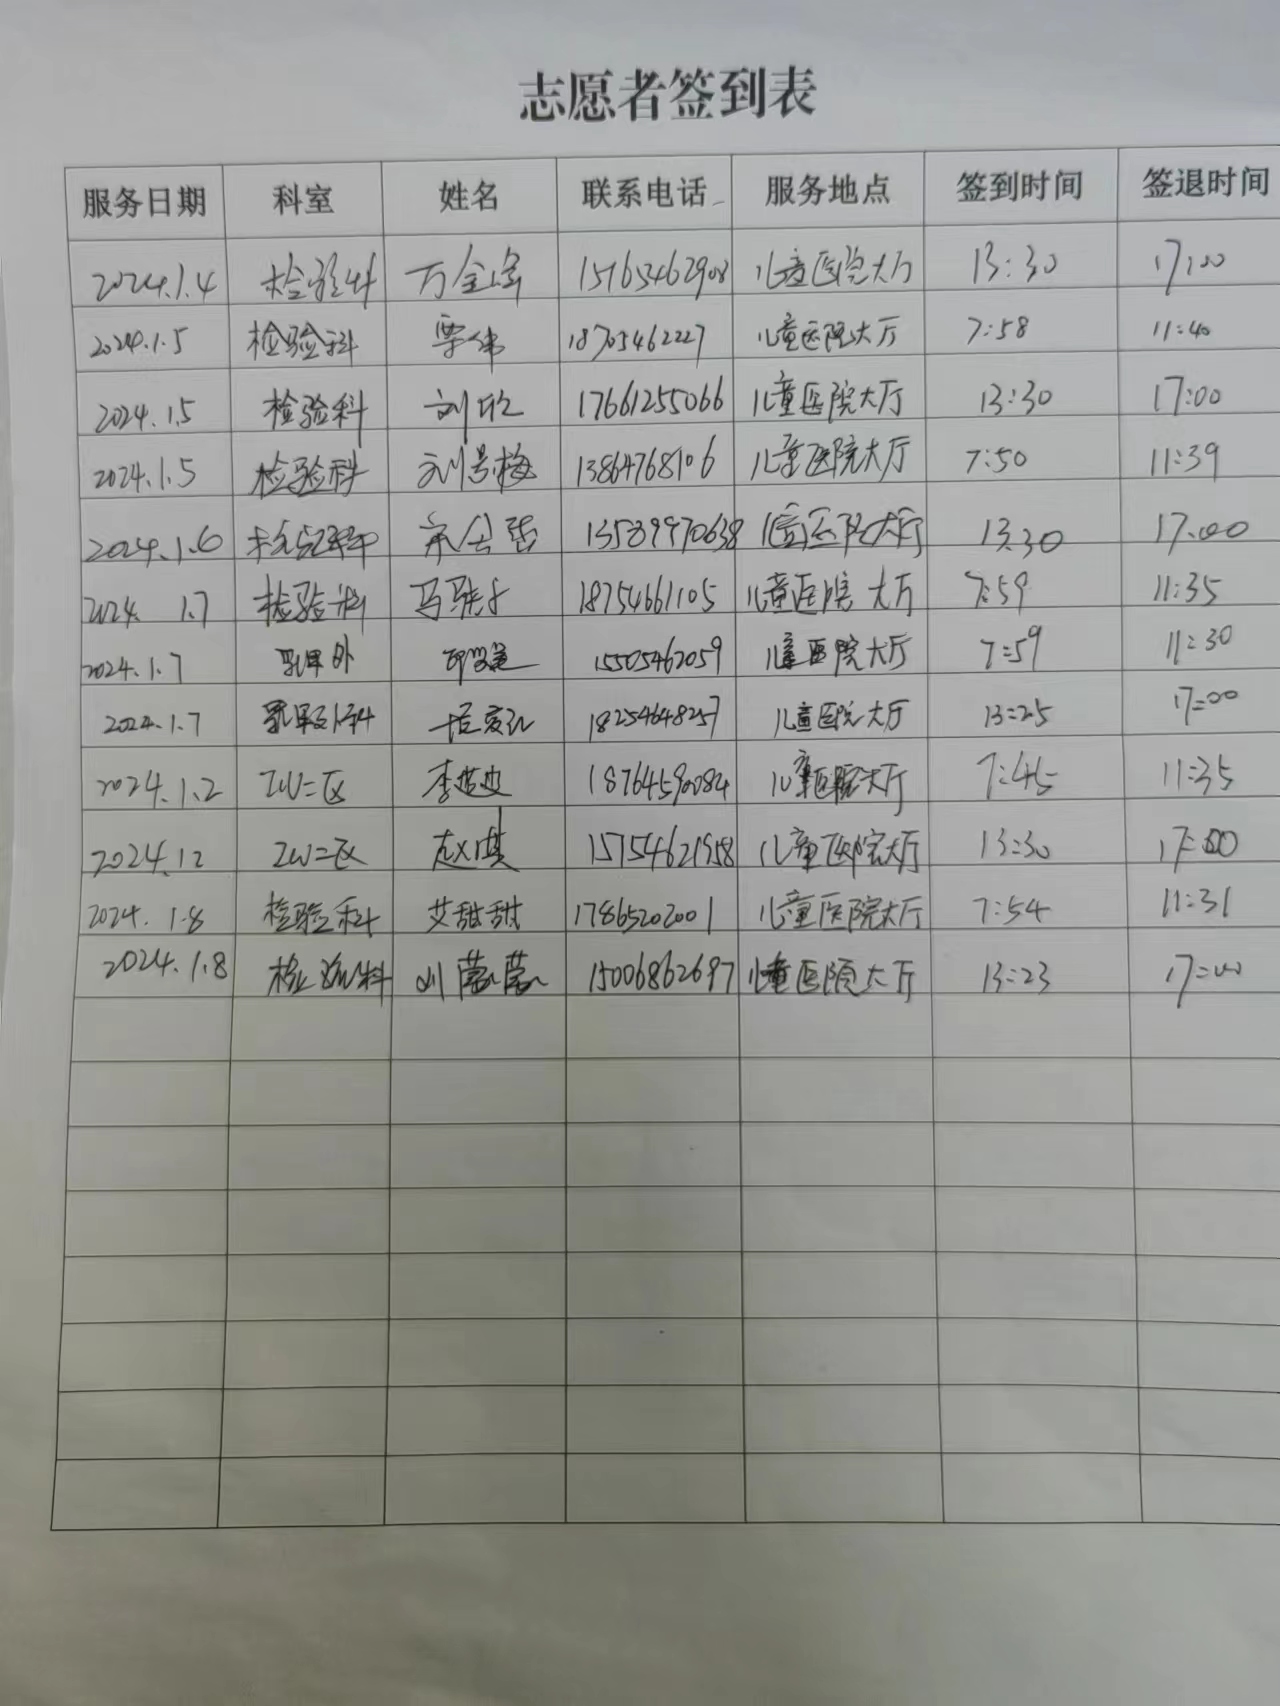 志愿者签到表
服务日期 科室 姓名 联系电话 服务地点 签到时间 签退时间
2024.1.4 检验科 万金峰 15765462908 儿童医院大厅 13:30 17:00
2024.1.5 检验科 栗伟 18705462227 儿童医院大厅 7:58 11:40
2024.1.5 检验科 刘欣 17661255066 儿童医院大厅 13:30 17:00
2024.1.5 检验科 刘景梅 13864768106 儿童医院大厅 7:50 11:39
2024.1.6 检验科 13589970638 儿童医院大厅 13:30 17:00
2024. 1.7 检验科 18754661105 儿童医院 大厅 7:59 11:35
2024.1.7 乳甲外 15505462059 儿童医院大厅 7:59 11:30
2024.1.7 乳甲外科 18254648257 儿童医院大厅 13:25 17:00
2024.1.2 ICU二区 18764590084 儿童医院大厅 7:45 11:35
2024.1.2 ICU二区 赵琪 15754621958 儿童医院大厅 13:30 17:00
2024.1.8 检验科 艾甜甜 17865202001 儿童医院大厅 7:54 11:31
2024.1.8 检验科 刘蒙蒙 15006862697 儿童医院大厅 13:23 17:00